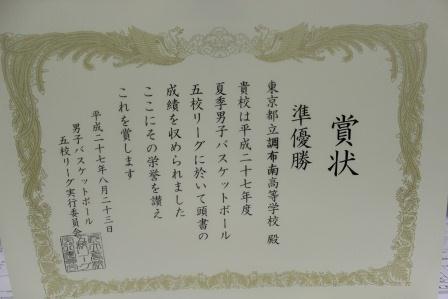 賞状
準優勝
東京都立調布南高等学校 殿
貴校は平成二十七年度
夏季男子バスケットボール
五校リーグに於いて頭書の
成績を収められました
ここにその栄誉を讃え
これを賞します
平成二十七年八月二十三日
男子バスケットボール
五校リーグ実行委員会